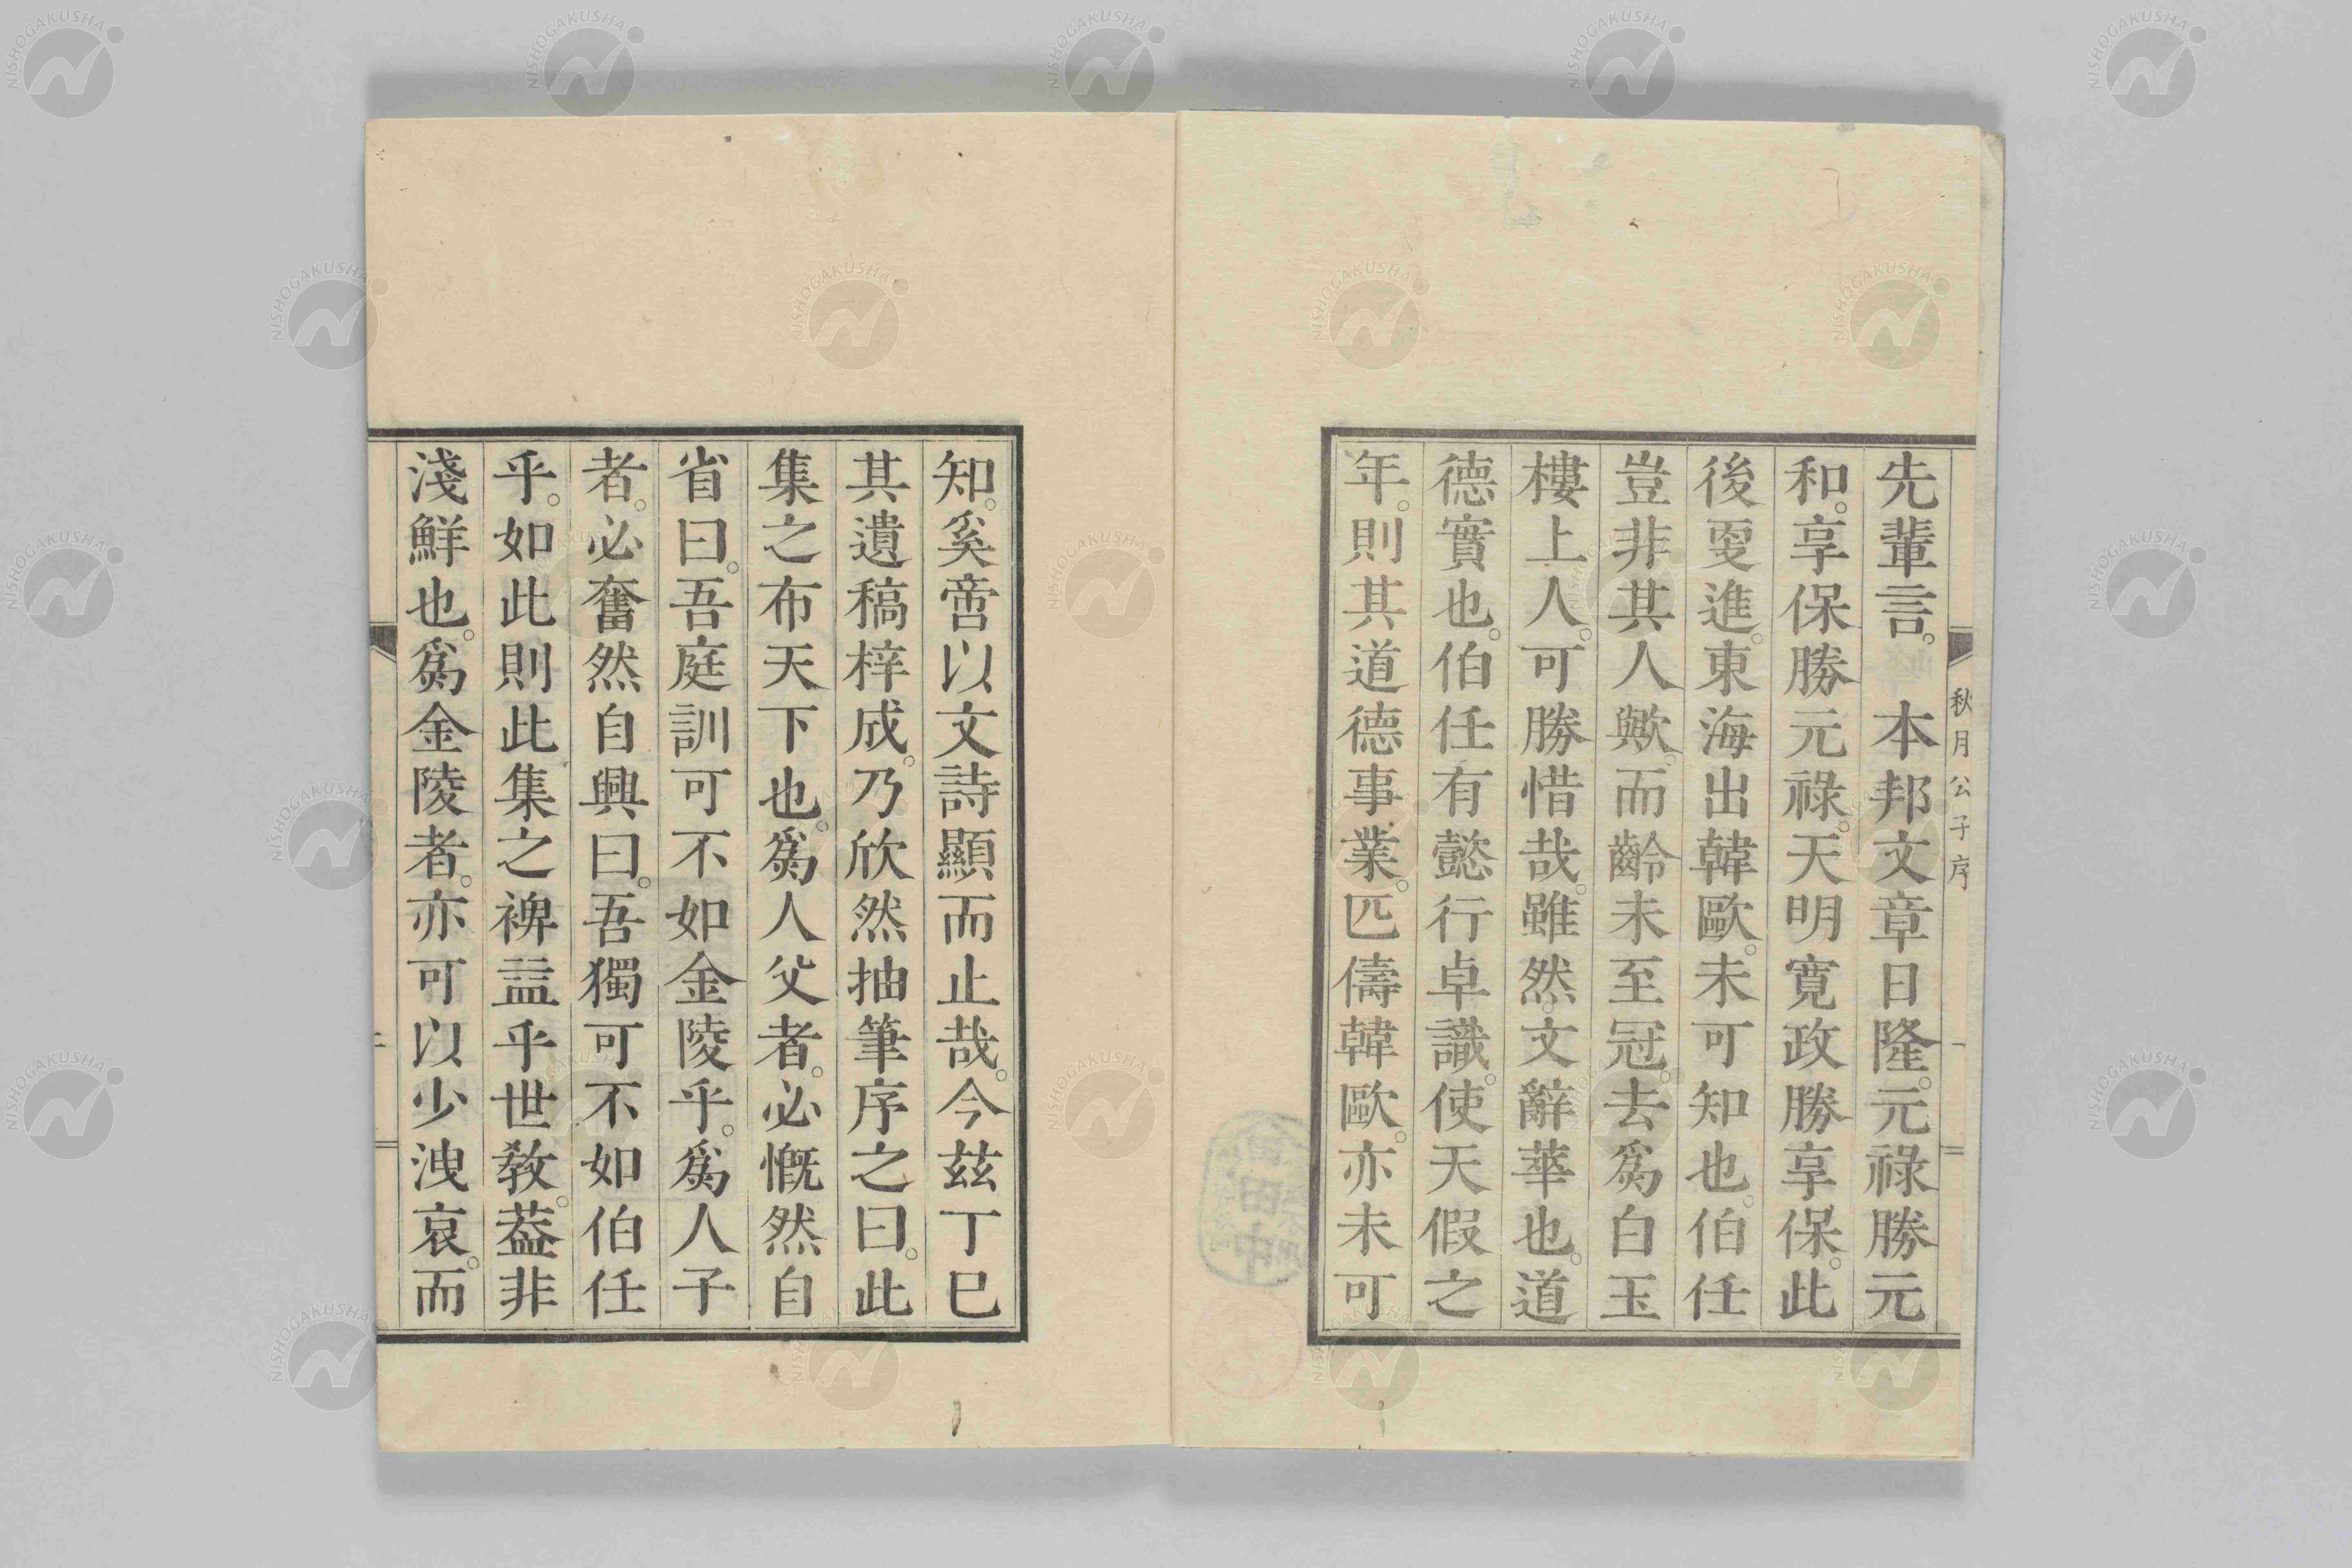 先輩言。　本邦文章日隆。元祿勝元
和。享保勝元祿。天明寛政勝享保。此
後叓進。東海出韓歐。未可知也。伯任
豈非其人歟。而齡未至冠。去爲白玉
樓上人。可勝惜哉。雖然。文辭華也。道
德實也。伯任有懿行卓識。使天假之
年。則其道德事業。匹儔韓歐。亦未可
秋月公子序
一
知。奚啻以文詩顯而止哉。今茲丁巳
其遺稿梓成。乃欣然抽筆序之曰。此
集之布天下也。爲人父者。必慨然自
省曰。吾庭訓可不如金陵乎。爲人子
者。必奮然自興曰。吾獨可不如伯任
乎。如此則此集之裨益乎世教。葢非
淺鮮也。爲金陵者。亦可以少洩哀。而
NISHOGAKUSHA